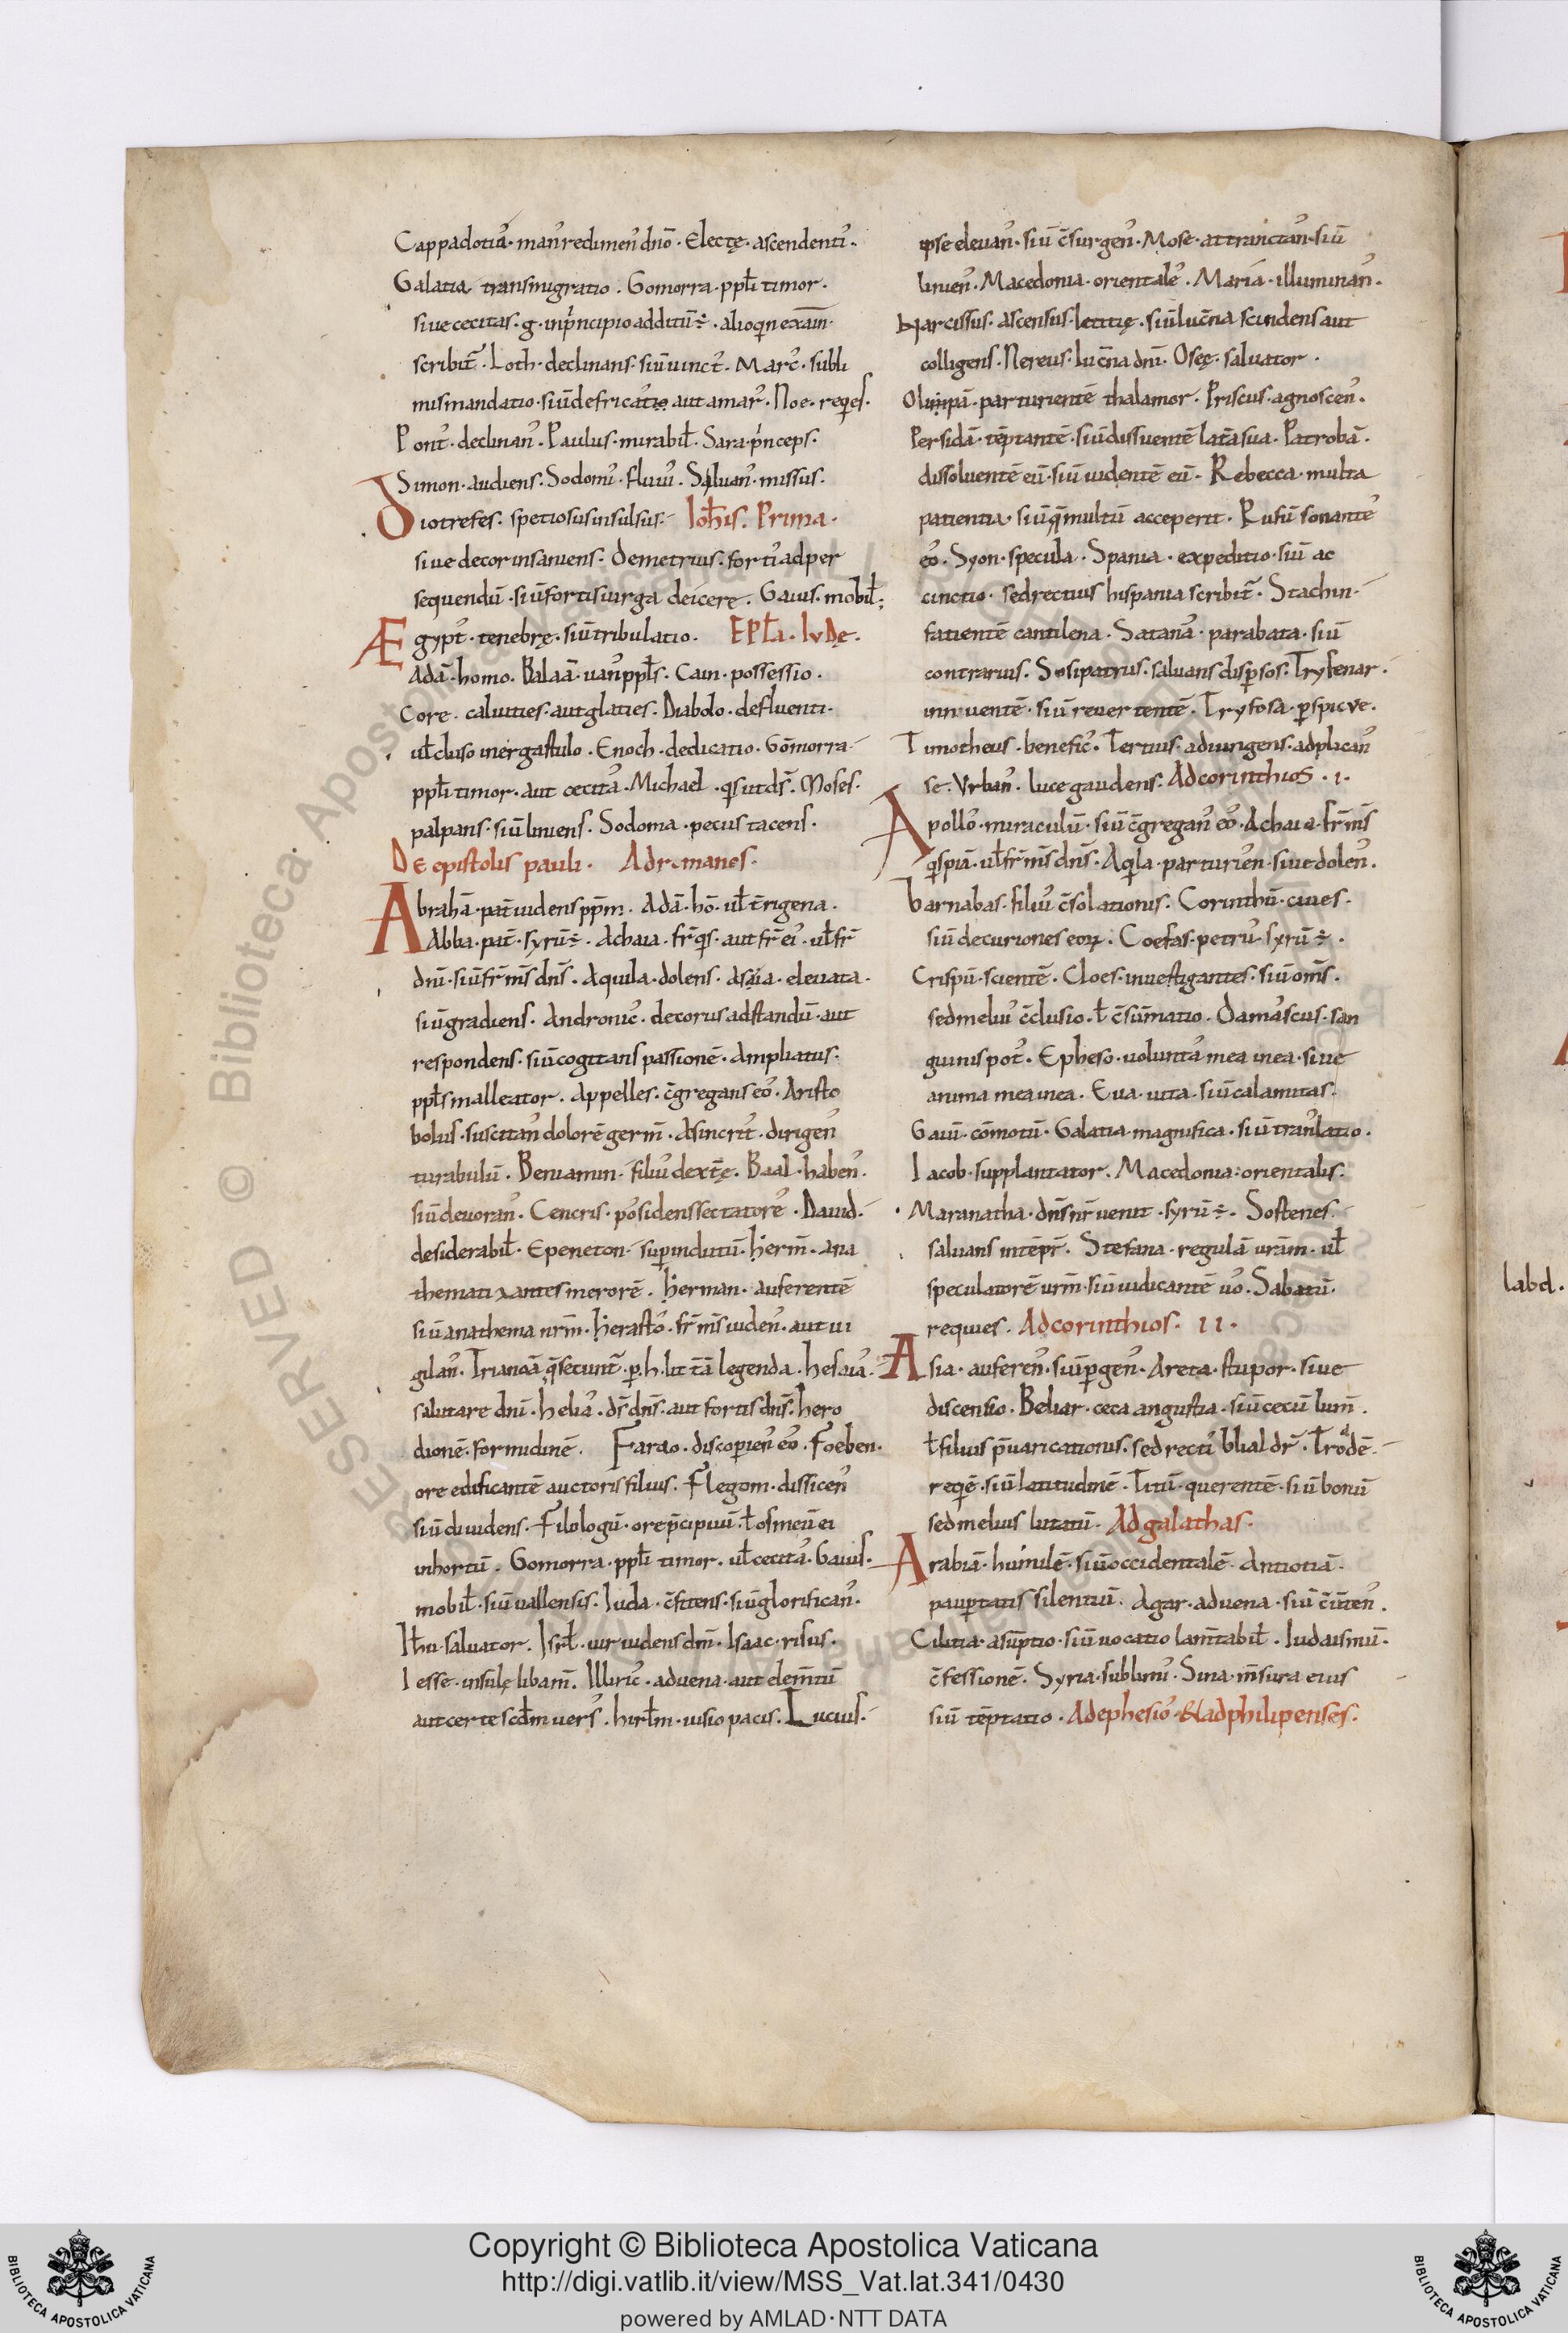 Cappadotia᾽· man᾽redimen᾽ dnō · Electę · ascendenti᾽·
Galatia transmigratio . Gomorra · ppłi timor ·
siue cecitas · g · inp̄ncipio additū÷ · alioqin exam̄
scribit̄ . Loth · declinans · siū uinct᾽ . Marc᾽ · subli
mis mandatio · siū defricatio᾽ aut amar᾽ . Noe · reqies ·
Pont᾽ · declinan᾽ . Paulus · mirabił . Sara · p̄nceps ·
Simon · audiens . Sodomi᾽ · fluui᾽ . Siluan᾽ · missus ·
Diotrefes · spetiosus insulsus · Ioħis . Prima ·
siue decor insaniens · Demetrius · forti᾽ adper
sequendū · siū fortis uirga deicere . Gaius · mobił ;
ÆGypt᾽ · tenebrę · siū tribulatio . EPŁA · IVDĘ ·
Adā · homo . Balaā · uan᾽ ppłs . Cain · possessio .
Core · caluities · aut glaties . Diabolo · defluenti ·
uł cluso in ergastulo . Enoch · dedicatio . Gōmorra
ppłi timor · aut cecita᾽ . Michael · qs ut ds̄ . Moses ·
palpans · siū liniens . Sodoma · pecus tacens ·
De epistolis pauli · Ad romanos ·
Abrahā · pat̄ uidens pp̄m . Adā · hō · uł t̄rigena ·
Abba · pat̄ · syrū÷ . Achaia · fr̄ qis · aut fr̄ ei᾽ · uł fr̄
dnī · siū fr̄ ms̄ dns̄ . Aquila · dolens . Asia · eleuata ·
siū gradiens . Andronic᾽ · decorus adstandū · aut
respondens · siū cogitans passionē · Ampliatus ·
ppłs malleator . Appelles · c̄gregans eo᾽ · Aristo
bolus · suscitan᾽ dolorē germ̄ . Asincrit᾽ · dirigen᾽
turabulū . Beniamin · filiu᾽ dext̄ę . Baal · haben᾽ ·
siū deuoran᾽ . Cencris · po᾽sidens sectatore᾽ . Dauid ·
desiderabił . Epeneton · supindutū · herm̄ · ana
thematizantes merorē . herman · auferentē
siū anathema nrm̄ · herasto᾽ · fr̄ ms̄ uiden᾽ · aut ui
gilan᾽ · Trianoā q̄secunt̄ · p · h · lit t̄ā legenda . hesaia᾽ ·
salutare dnī · helia᾽ · ds̄ dns̄ · aut fortis dns̄ . hero
dionē · formidinē . Farao · discopien᾽ eo᾽ . Foeben ·
ore edificantē auctoris filius . Flegom · dissicen᾽
siū diuidens · Filologū · ore p̄cipiuū · ł os meū ei
in hortū . Gomorra · ppłi timor · uł cecita᾽ . Gaius ·
mobił · siū uallensis . Iuda · c̄fitens · siū glorifican᾽ ·
Iħu · saluator . Isrł · uir uidens dm̄ . Isaac · risus ·
Iesse · insulę libam̄ . Illiric᾽ · aduena · aut elem̄tū
aut certe scd̄m uers᾽ . hirłm · uisio pacis . Lucius ·
ipse eleuan᾽ · siū c̄surgen᾽ . Mose · attrinctan᾽ · siū
linien᾽ . Macedonia · orientale᾽ . Mariā · illuminan᾽ .
Narcissus · ascensus · letitię · siū luc̄na scindens aut
colligens . Nereus · luc̄na dnī . Osęe · saluator ·
Olimpā · parturientē thalamor . Priscus · agnoscen᾽ .
Persidā · tēptantē · siū dissuentē lat̄ā sua . Patrobā ·
dissoluentē eū · siū uidentē eū . Rebecca · multa
patientia · siū q̄ multū acceperit · Rufū sonante᾽
eo᾽ . Syon · specula . Spania · expeditio · siū ac
cinctio · sed rectius hispania scribit̄ . Stachin ·
fatientē cantilena . Satana᾽ · parabata · siū
contrarius . Sosipatrus · saluans dispsos . Tryfenar ·
innuentē · siū reuertentē . Tryfosa · pspicue .
Timotheus · benefic᾽ . Tertius · adiungens · adplican᾽
se . Vrban᾽ . luce gaudens . Ad corinthios · I ·
Apollo᾽ · miraculū · siū c̄gregan᾽ eo᾽ . Achaia · fr̄ ms̄
qispiā · uł fr̄ ms̄ dns̄ . Aqila · parturien᾽ · siue dolen᾽ .
barnabas · filiu᾽ c̄solationis . Corinthū · ciues ·
siū decuriones eorꝝ . Coefas · petru᾽ · syrū÷ .
Crispū · scientē . Cloes · inuestigantes · siū oms̄ ·
sed meliu᾽ c̄clusio · ł c̄sūmatio . Dama᾽scus · san
guinis pot᾽ . Epheso · volunta᾽ mea inea · siue
anima mea inea . Eua · uita · siū calamitas ·
Gaiū · cōmotū . Galatia · magnifica · siū tran᾽latio .
Iacob · supplantator . Macedonia · orientalis ·
Maranatha · dns̄ nr̄ uenit · syrū÷ . Sostenes ·
saluans intēpr̄ . Stefana · regulā uram̄ · uł
speculatorē urm̄ · siū iudicantē uo᾽ . Sabatū ·
requies . Ad corinthios · II ·
Asia · auferen᾽ · siū pgen᾽ . Areta · stupor · siue
discensio . Beliar · ceca angustia · siū cecū lum̄ .
ł filius p̄uaricationis · sed recti᾽ blial dr̄ . Troadē
reqiē · siū latitudinē . Titū · querentē · siū bonū
sed melius lutatū . Ad galathas ·
Arabiā · humilē · siū occidentalē · Antiotiā ·
paup̄tatis silentiū . Agar · aduena · siū c̄ūten᾽ .
Cilitia · asūptio · siū uocatio lam̄tabił . Iudaismū ·
c̄fessionē . Syria · sublimi᾽ . Sina · m̄sura eius
siū tēptatio . Ad ephesio᾽ · & ad philipenses ·
labd ·
RESERVED © Biblioteca Apostolica Vaticana
Copyright © Biblioteca Apostolica Vaticana
http://digi.vatlib.it/view/MSS_Vat.lat.341/0430
powered by AMLAD·NTT DATA
BIBLIOTECA APOSTOLICA VATICANA
BIBLIOTECA APOSTOLICA VATICANA